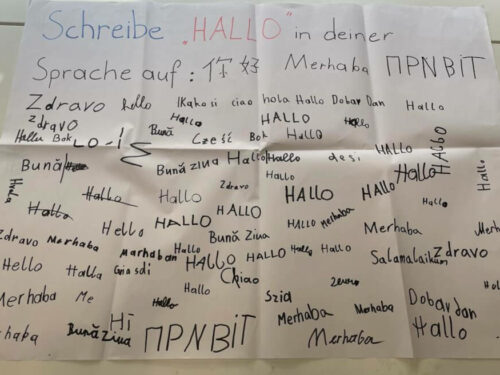 Schreibe „HALLO" in deiner
Sprache auf: 你好 Merhaba ПРNВІТ
Zdravo hello Kako si ciao hola Hallo Dobar Dan Hallo
Zdravo HALLO Hallo
Bok LO-Í Bună Cześć Bok Hallo HALLO HALLO
Bună Bună ziua Hallo Hallo desi Hallo
Hallo Hallo Hallo Zdravo HALLO HALLO Hallo
Hello HALLO HALLO HALLO Merhaba Merhaba
Zdravo Merhaba Marhaban Hallo Bună Ziua Hallo Hallo Salamalaikum Zdravo
Hello Halla HALLO HALLO
Chiao
Merhaba Me Hallo Hallo Szia Dobar dan
Merhaba Merhaba Hallo
Bună Ziua Hi ПРNВІТ Merhaba